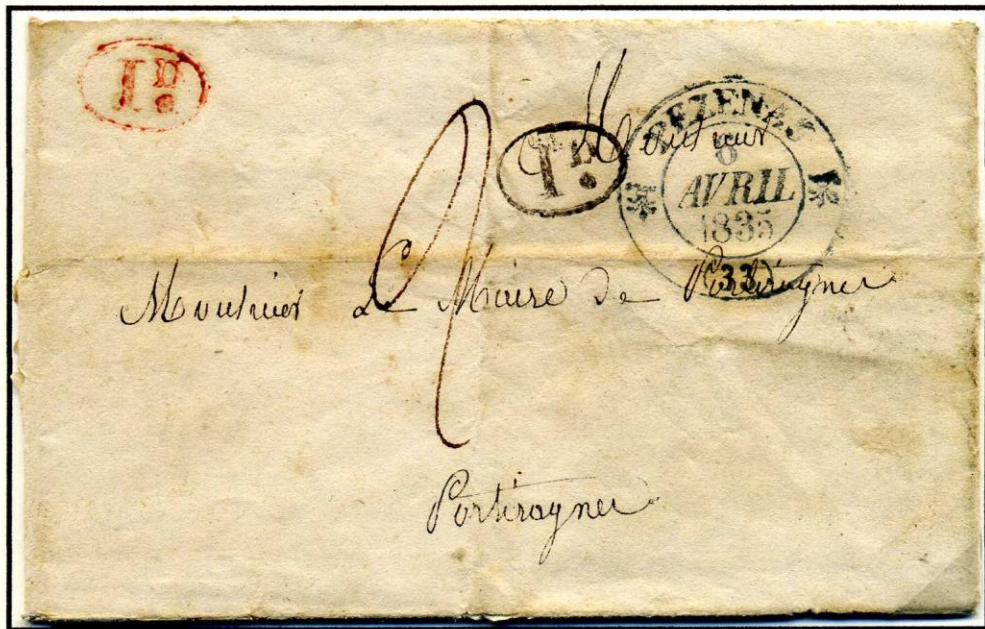 1D.
1D.
PEZENAS
6
AVRIL
1835
(33)
2
Monsieur
Monsieur Le Maire de Portiragnes
Portiragnes